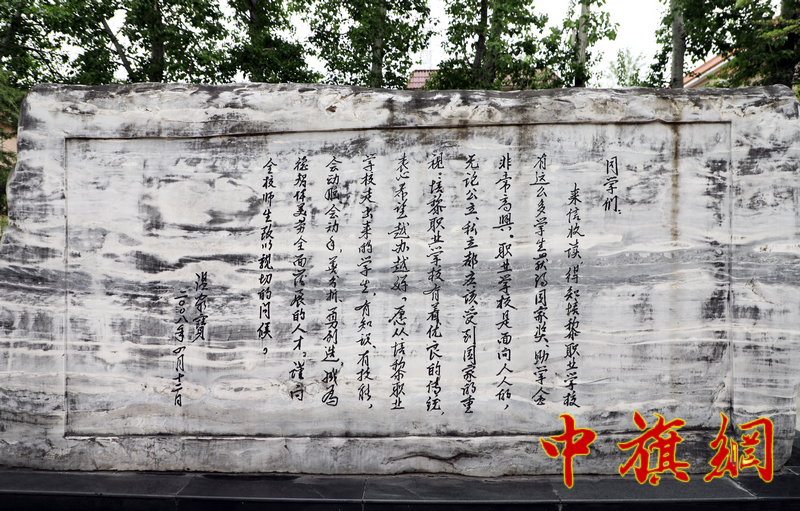 同学们：
来信收读，得知培黎职业学校
有这么多学生获得国家奖、助学金
非常高興。职业学校是面向人人的，
无论公立、私立都应该受到国家的重
视。培黎职业学校有着优良的传统，
衷心希望越办越好。愿从培黎职业
学校走出来的学生，有知识有技能，
会动脑会动手，善分析、勇创造，成为
德智体美劳全面发展的人才。谨向
全校师生致以親切的问候。
温家寶
二〇〇八年四月十二日
中旗網